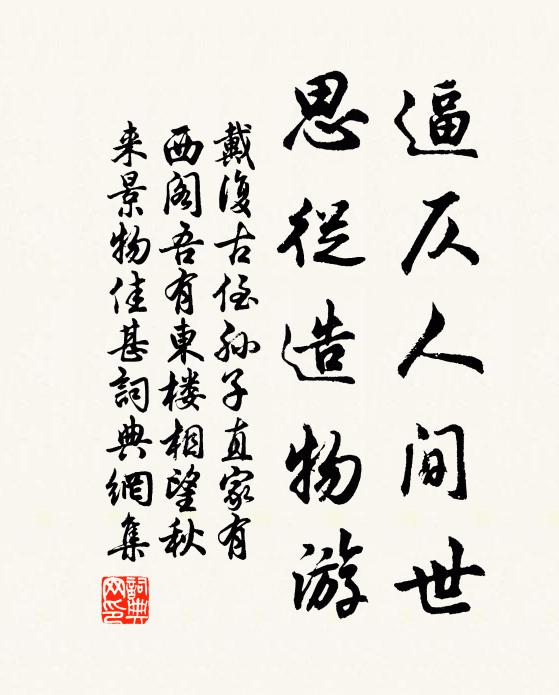 逼仄人间世
思從造物游
戴復古侄孙子直家有
西阁吾有東楼相望秋
来景物佳甚詞典網集
詞典網印